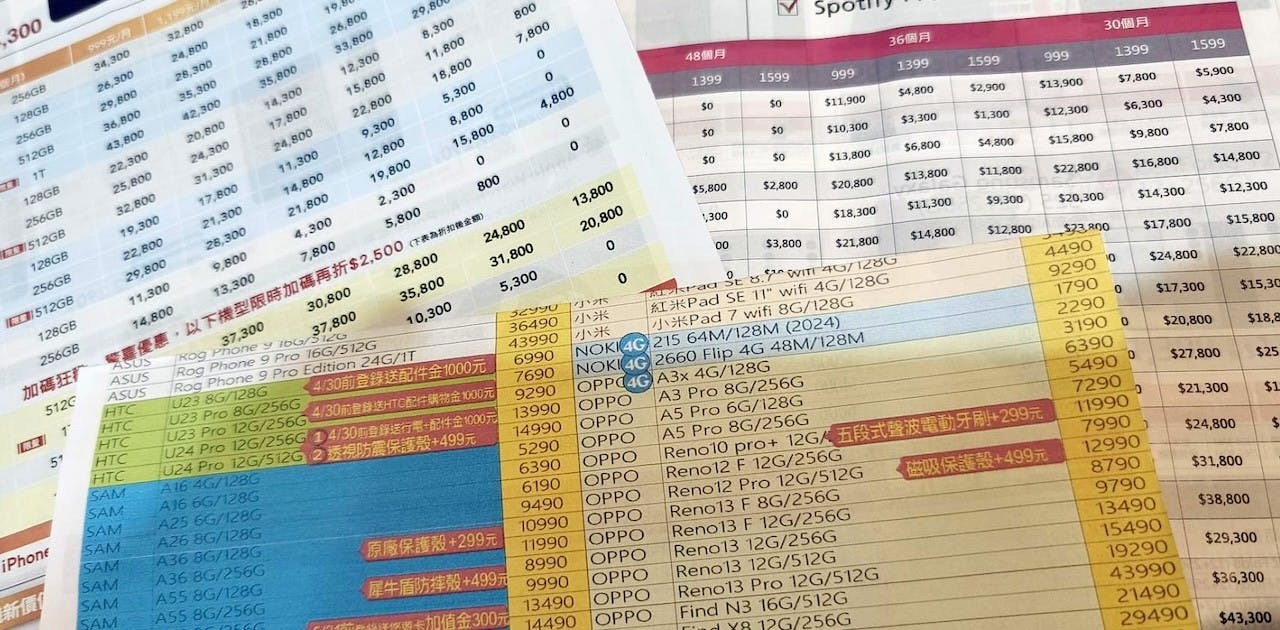 ,300
999元/月 1,199元/月
256GB 34,300 32,800
128GB 26,300 24,800 18,300
256GB 29,800 28,300 21,800
512GB 36,800 35,300 28,800 26,800
1T 43,800 42,300 35,800 33,800 29,800
128GB 22,300 20,800 14,300 12,300 8,300
256GB 25,800 24,300 17,800 15,800 11,800 800
512GB 32,800 31,300 24,800 22,800 18,800 7,800
128GB 19,300 17,800 11,300 9,300 5,300 0
256GB 22,800 21,300 14,800 12,800 8,800 0
512GB 29,800 28,300 21,800 19,800 15,800 4,800
128GB 11,300 9,800 4,300 2,300 0 0
256GB 14,800 13,300 7,800 5,800 800 0
優惠，以下機型限時加碼再折$2,500 (下表為折扣後金額)
加碼狂
37,300 30,800 28,800 24,800 13,800
37,800 35,800 31,800 20,800
10,300 5,300 0
0
iPhone
Spotify
48個月 36個月 30個月
1399 1599 999 1399 1599 999 1399 1599
$0 $0 $11,900 $4,800 $2,900 $13,900 $7,800 $5,900
$0 $0 $10,300 $3,300 $1,300 $12,300 $6,300 $4,300
$0 $0 $13,800 $6,800 $4,800 $15,800 $9,800 $7,800
$5,800 $2,800 $20,800 $13,800 $11,800 $22,800 $16,800 $14,800
,300 $0 $18,300 $11,300 $9,300 $20,300 $14,300 $12,300
00 $3,800 $21,800 $14,800 $12,800 $23,800 $17,800 $15,800
$24,800 $22,800
$17,300 $15,30
$20,800 $18,8
$27,800 $25
$21,300
$24,800
$31,800
$38,800
$29,300
$36,300
$43,300
ASUS Rog Phone 9 Pro 16G/512G 36490
ASUS Rog Phone 9 Pro Edition 24G/1T 43990
HTC U23 8G/128G 4/30前登錄送配件金1000元 6990
HTC U23 Pro 8G/256G 7690
HTC U23 Pro 12G/256G 4/30前登錄送HTC配件購物金1000元 9290
HTC U24 Pro 12G/256G ① 4/30前登錄送行電+配件金1000元 13990
HTC U24 Pro 12G/512G ② 透視防震保護殼+499元 14990
SAM A16 4G/128G 5290
SAM A16 6G/128G 6390
SAM A25 6G/128G 6190
SAM A26 8G/128G 9490
SAM A36 8G/128G 原廠保護殼+299元 10990
SAM A36 8G/256G 11990
SAM A55 8G/128G 犀牛盾防摔殼+499元 8990
SAM A55 8G/256G 9990
13490
加值金300元 14490
小米 紅米Pad SE 8.7 wifi 4G/128G
小米 紅米Pad SE 11" wifi 4G/128G 4490
小米 小米Pad 7 wifi 8G/128G 9290
NOKI 4G 215 64M/128M (2024) 1790
NOKI 4G 2660 Flip 4G 48M/128M 2290
OPPO 4G A3x 4G/128G 3190
OPPO A3 Pro 8G/256G 6390
OPPO A5 Pro 6G/128G 5490
OPPO A5 Pro 8G/256G 7290
OPPO Reno10 pro+ 12G/ 五段式聲波電動牙刷+299元 11990
OPPO Reno12 F 12G/256G 7990
OPPO Reno12 Pro 12G/512G 磁吸保護殼+499元 12990
OPPO Reno13 F 8G/256G 8790
OPPO Reno13 F 12G/256G 9790
OPPO Reno13 12G/256G 13490
OPPO Reno13 12G/512G 15490
OPPO Reno13 Pro 12G/512G 19290
OPPO Find N3 16G/512G 43990
Find X8 12G/256G 21490
29490